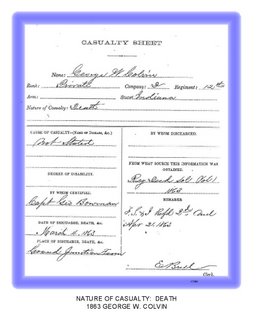 CASUALTY SHEET
Name: George W Colvin
Rank: Private Company: Regiment: 12th
Arm: State: Indiana
Nature of Casualty: Death
NATURE OF CASUALTY—(NAME OF DISEASE, &c.)
Not Stated
DEGREE OF DISABILITY.
BY WHOM CERTIFIED.
Capt Geo Bowman
DATE OF DISCHARGE, DEATH, &c.
March 11, 1863
PLACE OF DISCHARGE, DEATH, &c.
Grand Junction Tenn
BY WHOM DISCHARGED.
FROM WHAT SOURCE THIS INFORMATION WAS
OBTAINED.
1863
REMARKS
Apr 21, 1863
Clerk.
NATURE OF CASUALTY: DEATH
1863 GEORGE W. COLVIN